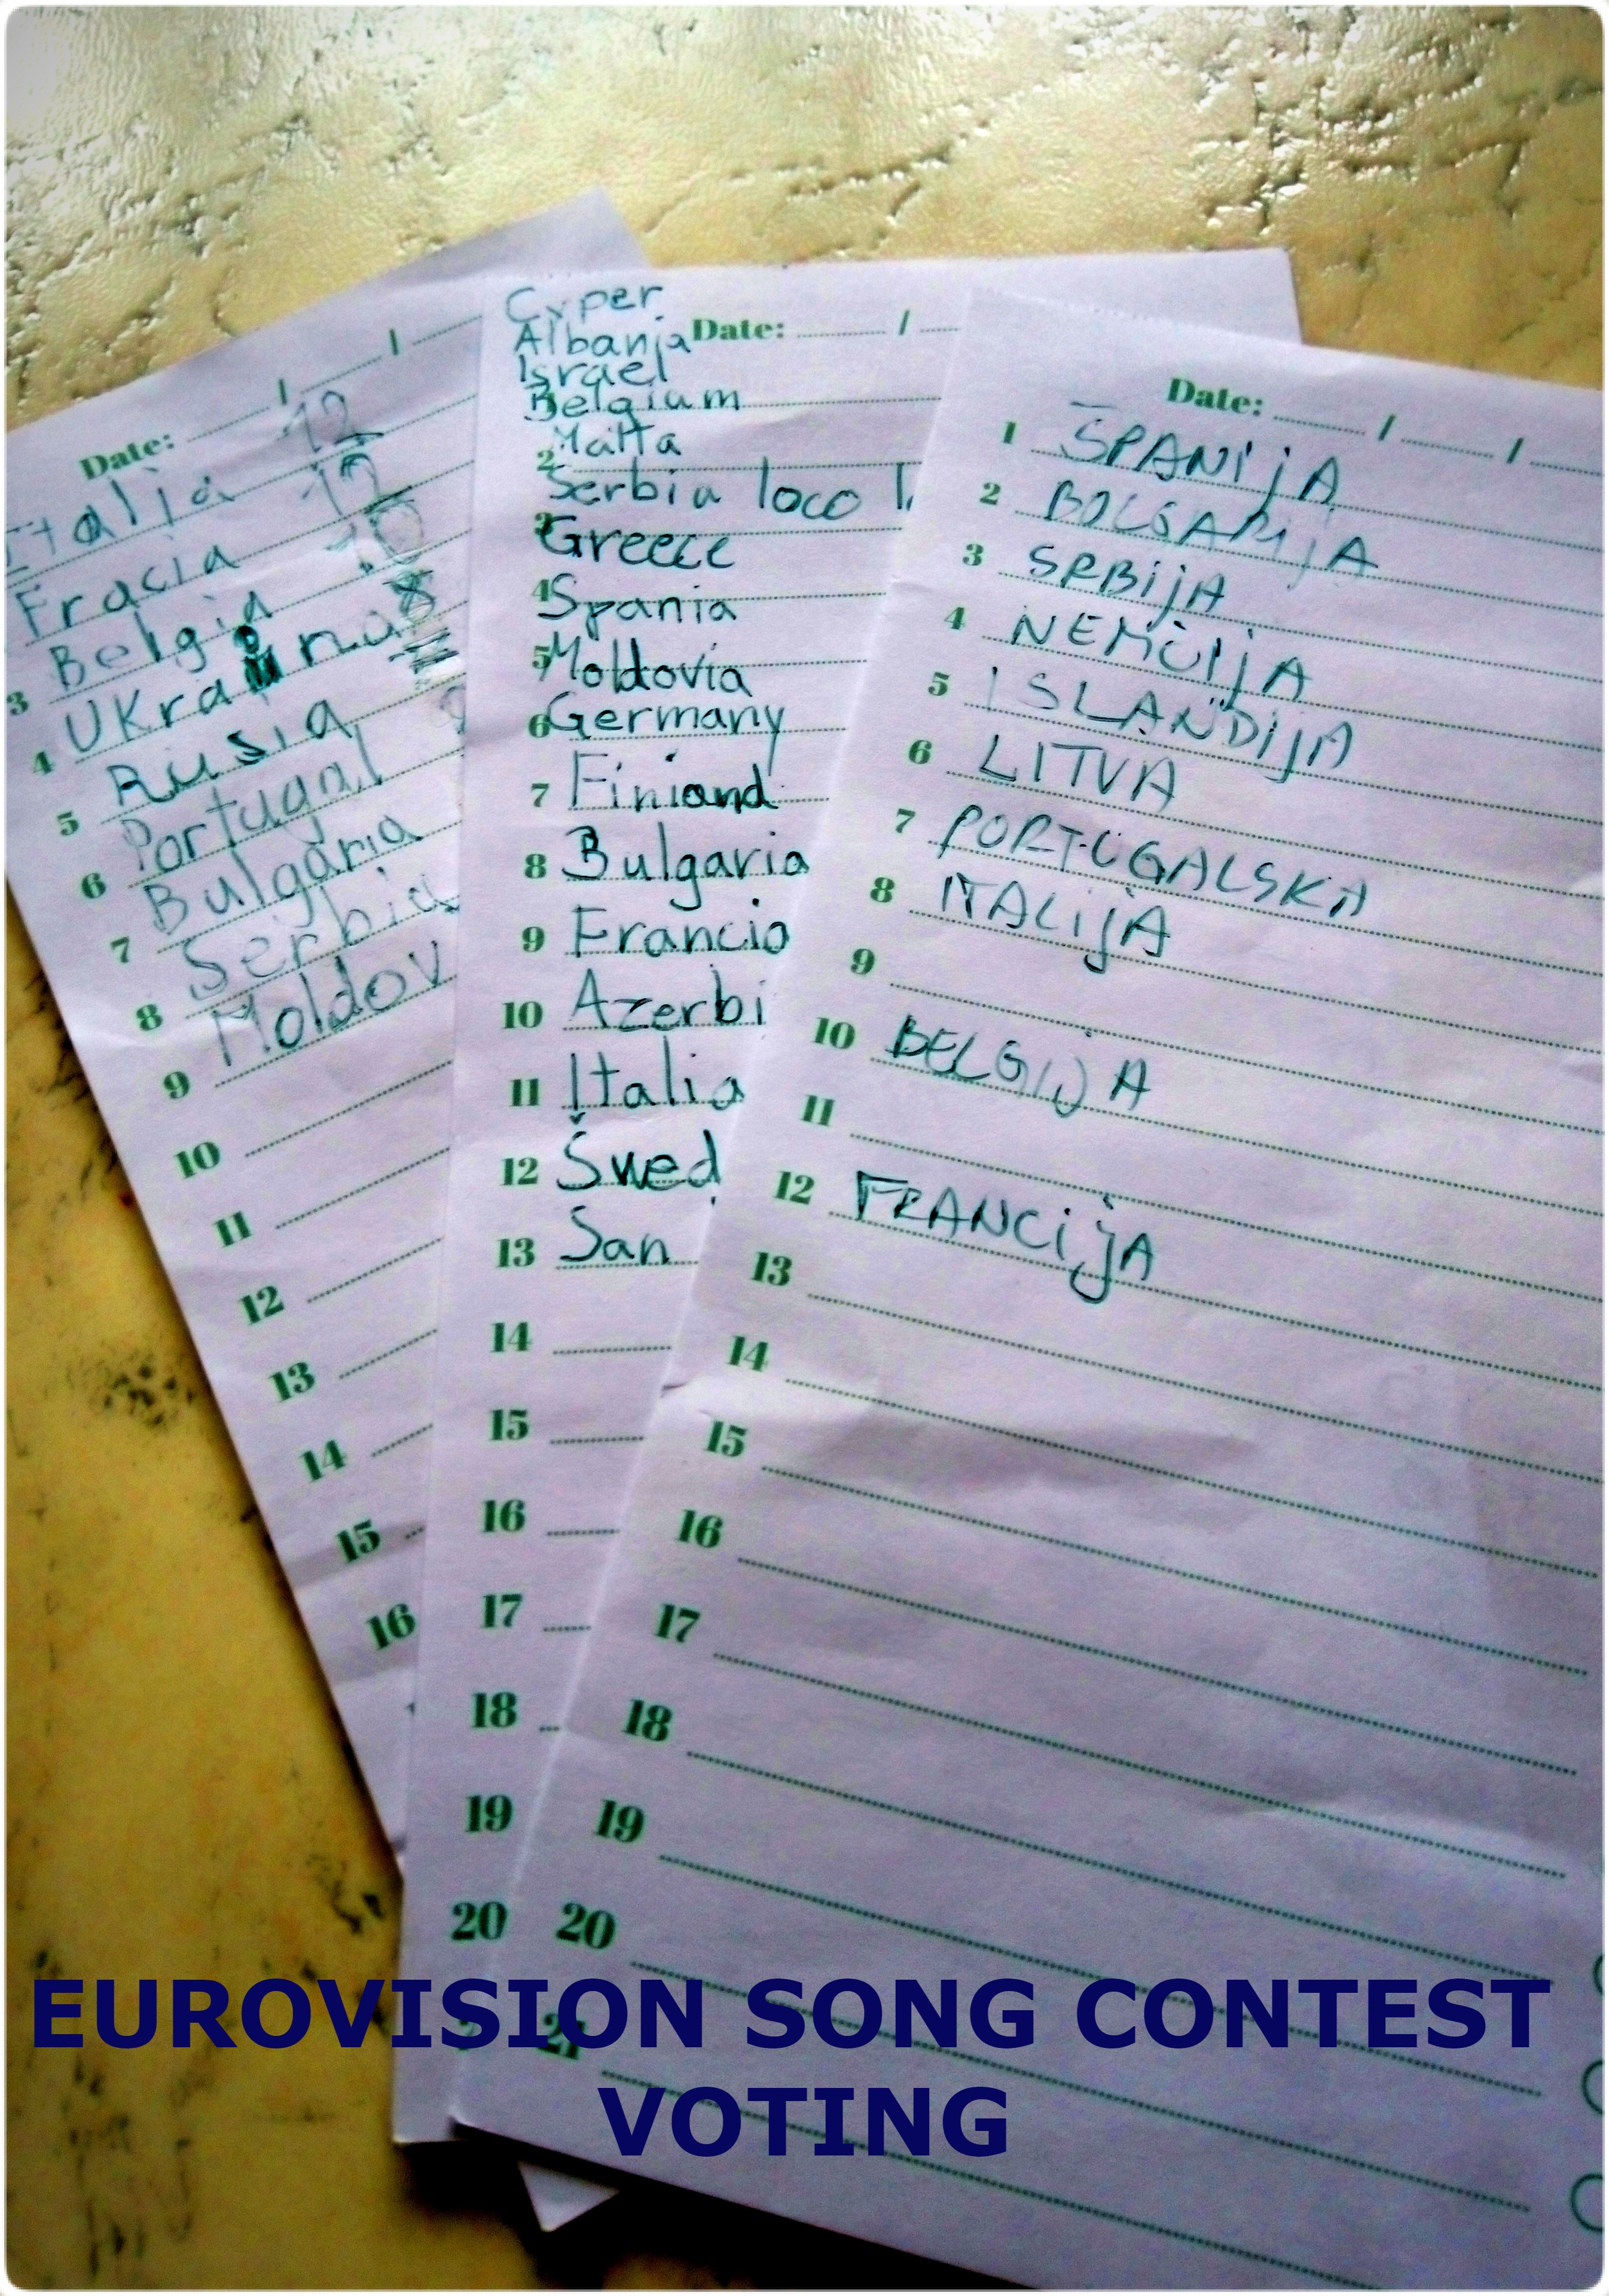 Date: / /
Italija 12
Fracia 12
Belgia 10
3
UKraina 8
4
Rusia
5
Portugal
6
Bulgaria
7
Serbia
8
Moldov
9
10
11
12
13
14
15
16
Cyper
Albania Date: /
Israel
Belgium
2 Malta
Serbia loco
3 Greece
4 Spania
5 Moldovia
6 Germany
7 Finland
8 Bulgaria
9 Francia
10 Azerbi
11 Italia
12 Šwed
13 San
14
15
16
17
18
19
20
Date: / /
1 ŠPANIJA
2 BOLGARIJA
3 SRBIJA
4 NEMČIJA
5 ISLANDIJA
6 LITVA
7 PORTUGALSKA
8 ITALIJA
9
10 BELGIJA
11
12 FRANCIJA
13
14
15
16
17
18
19
20
21
EUROVISION SONG CONTEST
VOTING